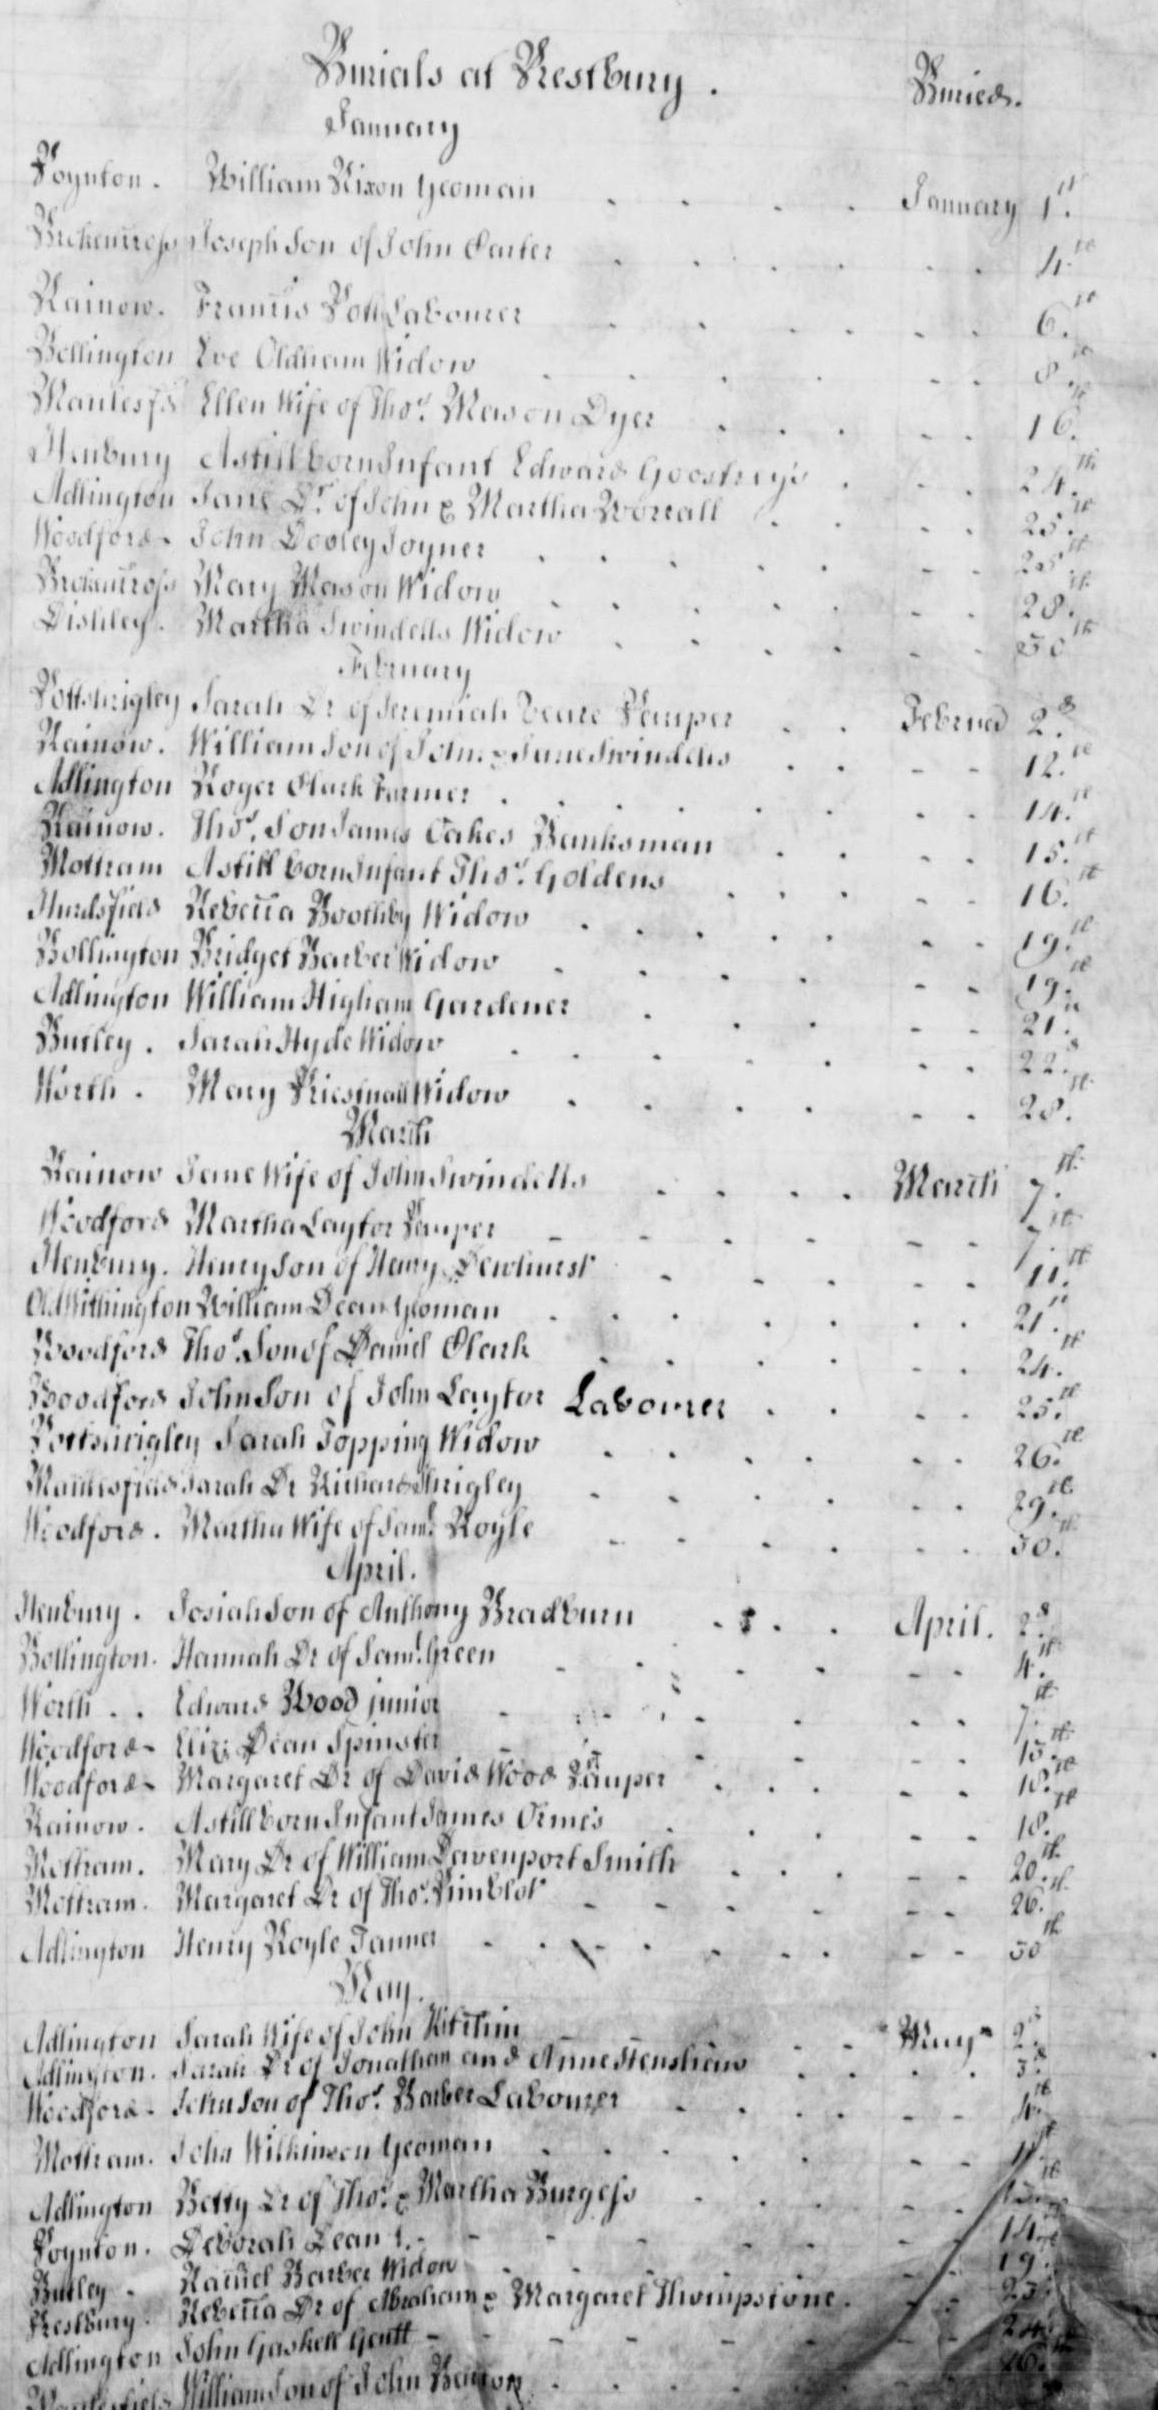 Burials at Prestbury. Buried.
January
Poynton. William Nixon Yeoman January 1st.
Brokencross Joseph Son of John Carter 4th
Rainow. Francis Pott Labourer 6.th
Bollington Eve Oldham Widow 8.th
Macclesfd Ellen Wife of Thos. Mason Dyer 16.th
Henbury A still born Infant Edward Goostrey's 24.th
Adlington Jane Dr. of John & Martha Worrall 25.th
Woodford John Dooley Joyner 25.th
Brokencross Mary Mason Widow 28.th
Dishley. Martha Swindells Widow 30th
February
Pottshrigley Sarah Dr of Jeremiah Beare Pauper 2.d
Rainow. William Son of John & Jane Swindells 12.th
Adlington Roger Clark Farmer 14.th
Rainow. Thos. Son James Oakes Banksman 15.th
Mottram A still born Infant Thos. Goldens 16.th
Hurdsfield Rebecca Boothby Widow 19.th
Bollington Bridget Barber Widow 19.th
Adlington William Higham Gardener 21.
Butley. Sarah Hyde Widow 22.d
Worth. Mary Widow 28.th
March
Rainow Jane Wife of John Swindells March 7.th
Woodford Martha Laytor Pauper 7.th
Henbury. Henry Son of Henry Dewhurst 11.th
Old Withington William Dean Yeoman 21.st
Woodford Thos. Son of Daniel Clark 24.th
Woodford John Son of John Laytor Labourer 25.th
Pottshrigley Sarah Topping Widow 26.th
Macclesfield Sarah Dr Richard Shrigley 29.th
Woodford. Martha Wife of Saml. Royle 30.th
April.
Henbury. Josiah Son of Anthony Bradburn April. 2.d
Bollington. Hannah Dr of Saml. Green 4.th
Worth.. Edward Wood junior 7.th
Woodford Eliz: Dean Spinster 15.th
Woodford Margaret Dr of David Wood Pauper 18.th
Rainow. A still born Infant James Orme's 18.th
Mottram. Mary Dr of William Davenport Smith 20.th
Mottram. Margaret Dr of Thos. Pimblot 26.th
Adlington Henry Royle Tanner 30th
May.
Adlington Sarah Wife of John Kitchin May 2.d
Adlington. Sarah Dr of Jonathan and Anne Henshaw 3.d
Woodford John Son of Thos. Barber Labourer 4.th
Mottram. John Wilkinson Yeoman
Adlington Betty Dr of Thos. & Martha Burgess
Poynton. Deborah Dean 14.th
Butley. Rachel Barber Widow 19.
Prestbury. Rebecca Dr of Abraham & Margaret Thompstone. 23.
Adlington John Gaskell Gentt 24.
Macclesfield William Son of John Barton